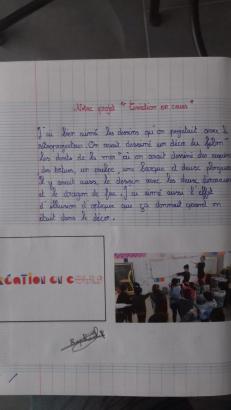 Notre projet " Création en cours "
J'ai bien aimé les dessins qu'on projetait avec le
rétroprojecteur. On avait dessiné un décor du film
"les dents de la mer" où on avait dessiné des requins
des balises, un poulpe, une barque et deux plongeurs.
Il y avait aussi le dessin avec les deux
et le dragon de feu. J'ai aimé aussi l'effet
d'illusion d'optique que ça donnait quand on
était dans le décor.
CRÉATION EN COURS